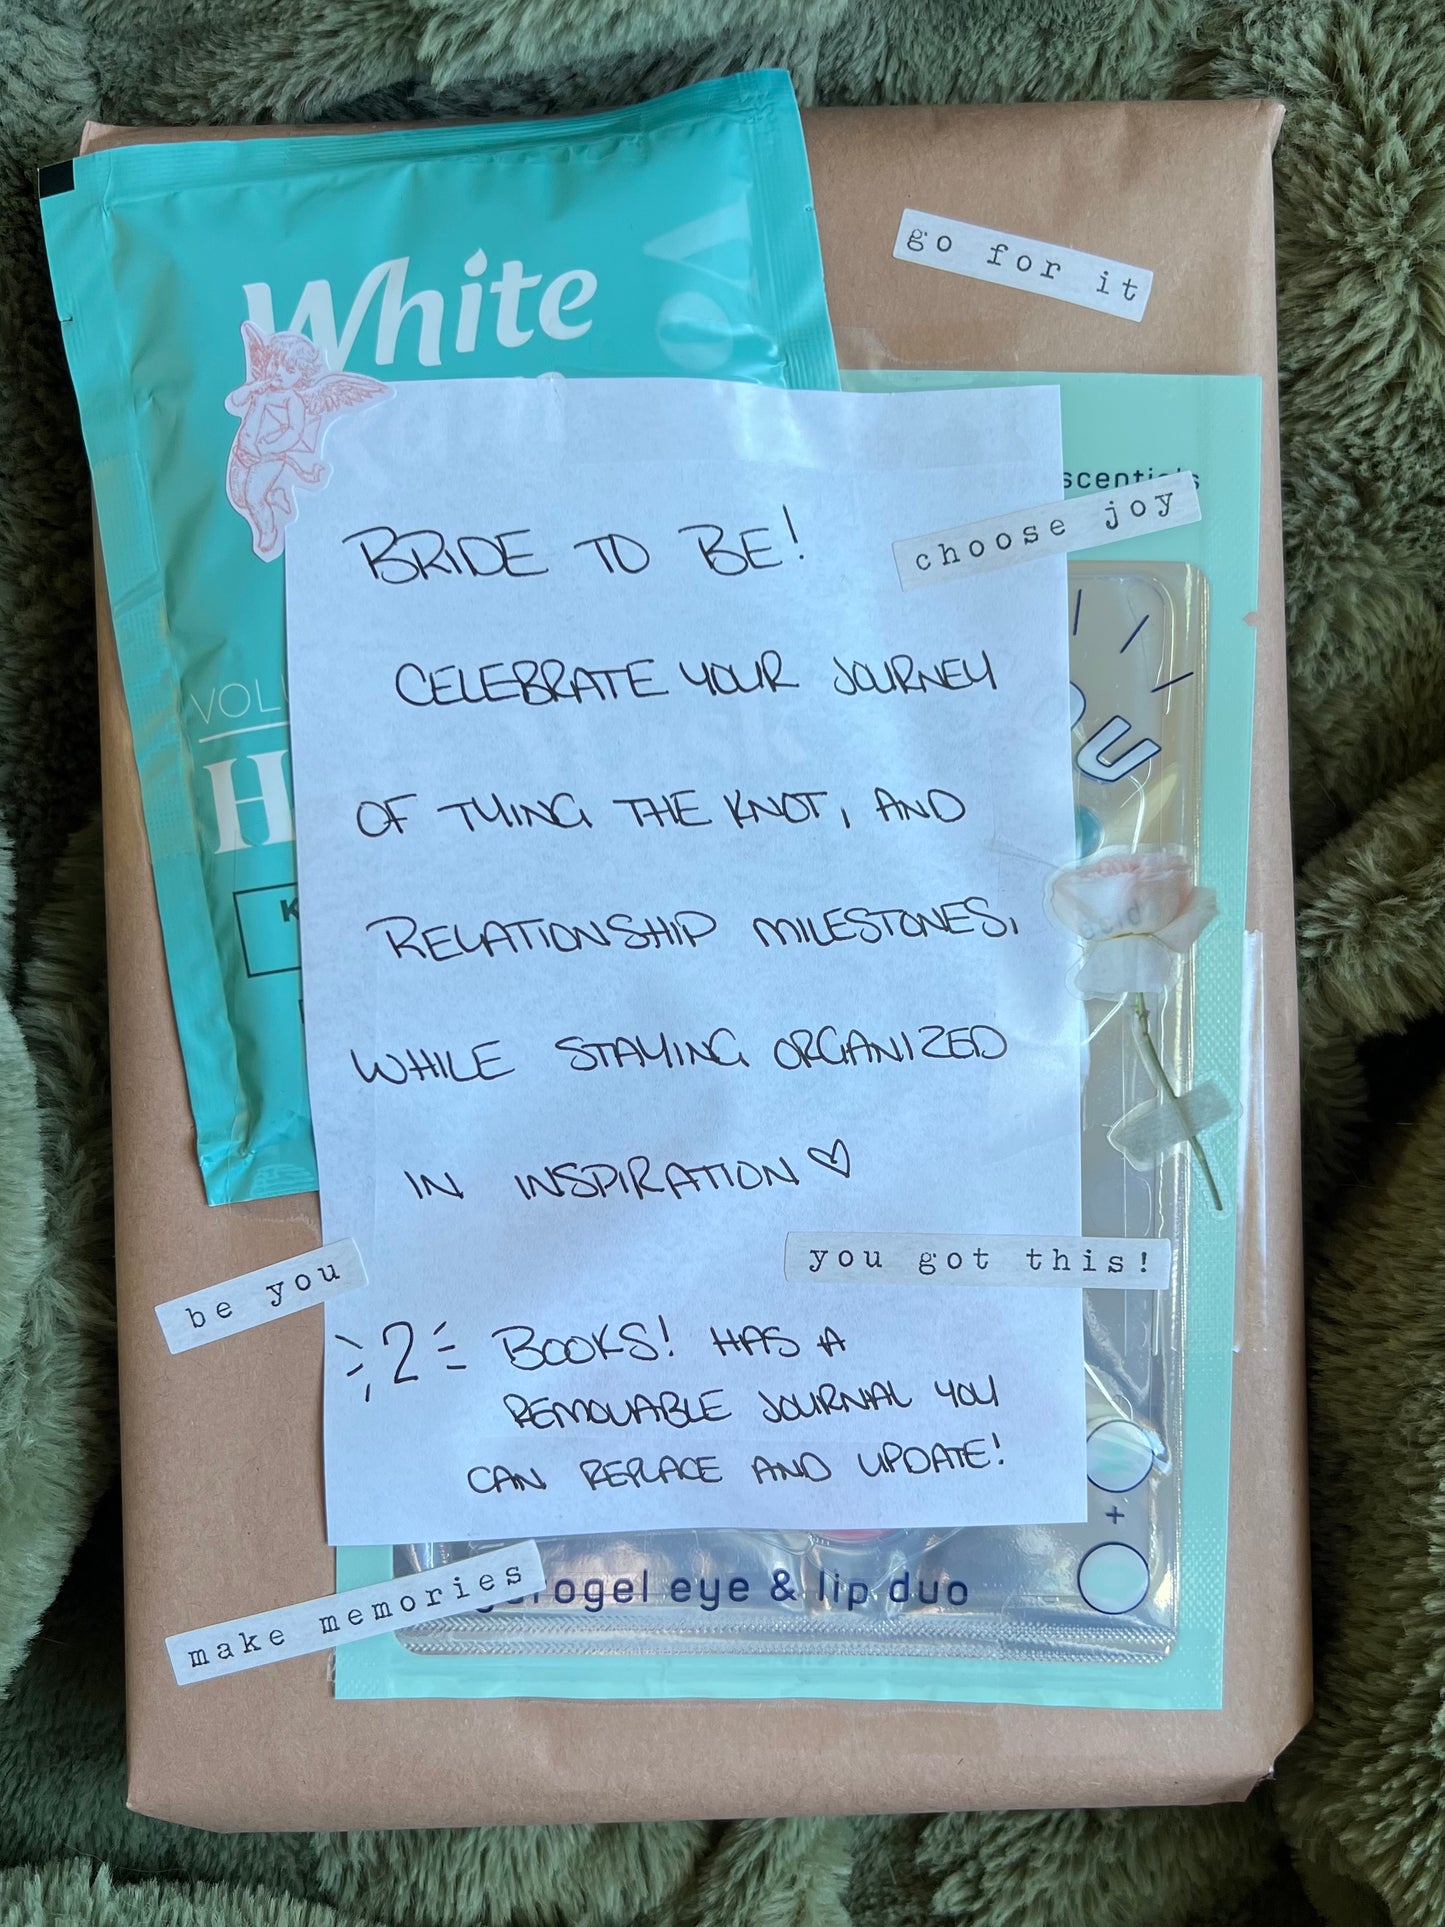 go for it
White
scentials
choose joy
BRIDE TO BE!
CELEBRATE YOUR JOURNEY
VOL
OU
OF TYING THE KNOT, AND
H
RELATIONSHIP MILESTONES,
WHILE STAYING ORGANIZED
IN INSPIRATION ♡
you got this!
be you
2 BOOKS! HAS A
REMOVABLE JOURNAL YOU
CAN REPLACE AND UPDATE!
+
make memories
rogel eye & lip duo